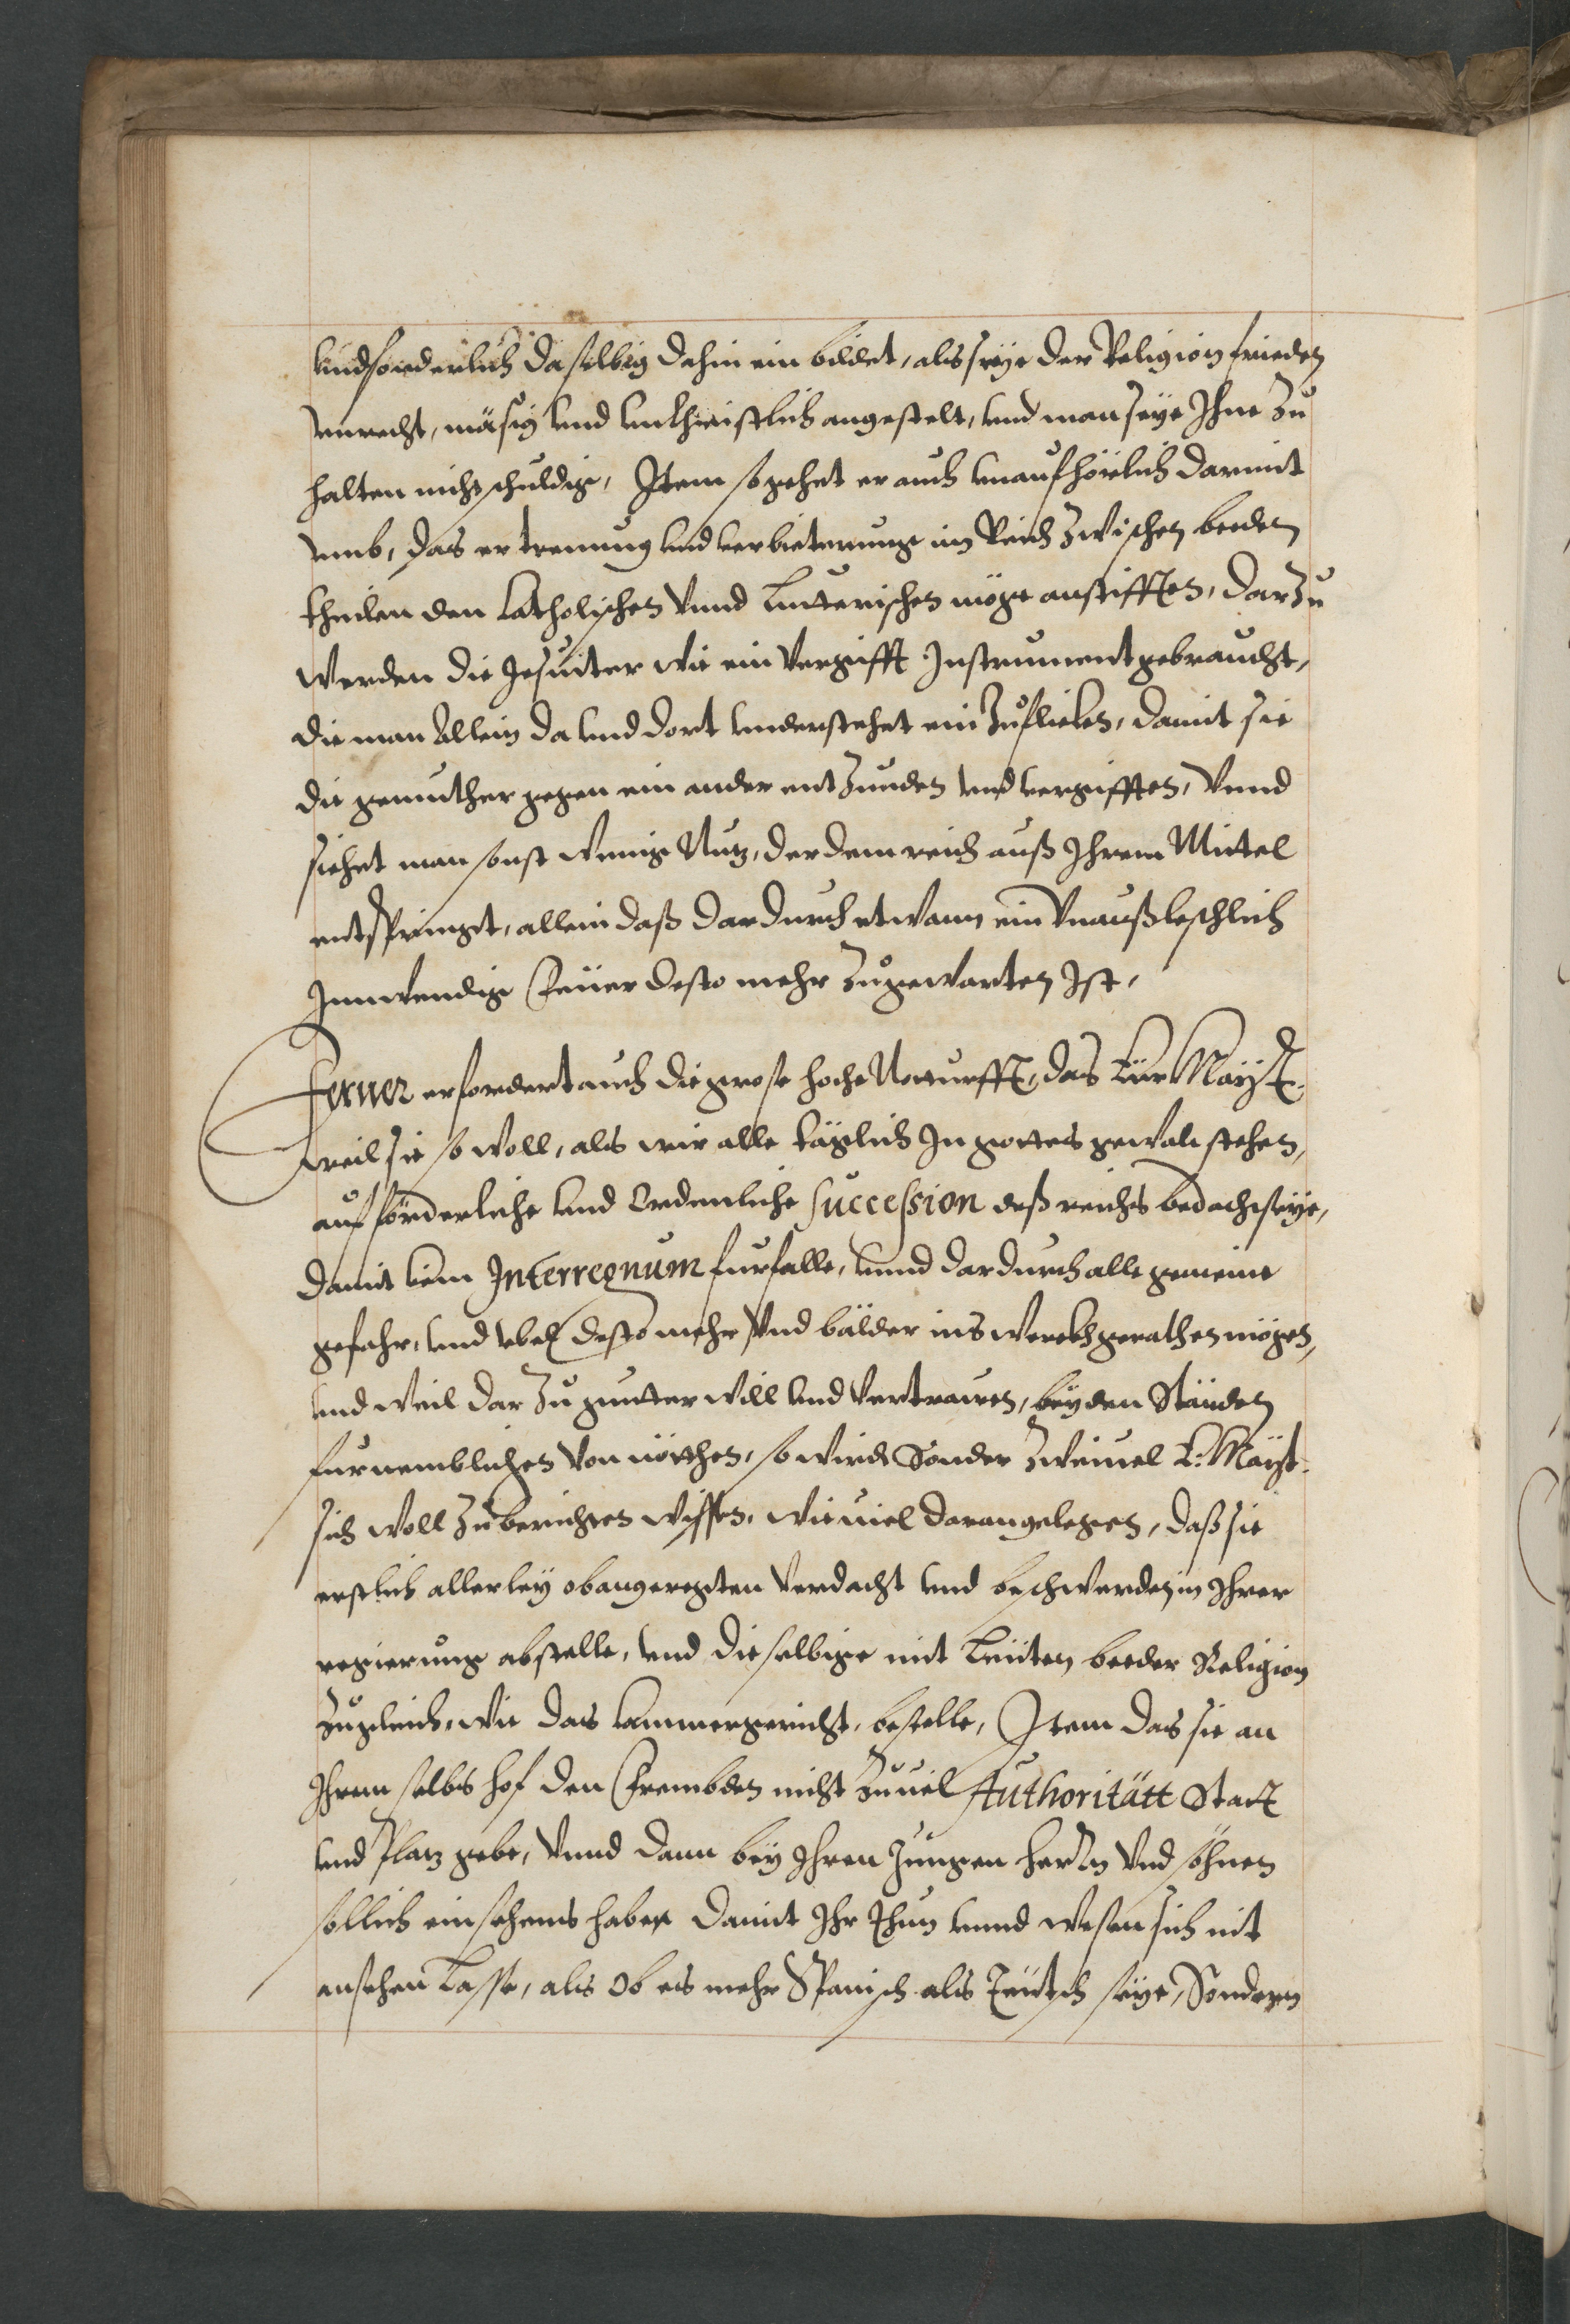 vnd sonderlich daselbig dahin ein bildet, als seye der Religion frieden
vnrecht, mäsig vnd vnchristlich angestelt, vnd man seye Ihne zu
halten nicht schuldig, Item so gehet er auch vnaufhörlich darmit
vmb, das er trennung vnd verbitterung im Reich zwischen beeden
theilen den Catholischen Vnnd Lutterischen möge anstifften, darzu
werden die Jesuiter wie ein vergifft Instrument gebraucht,
die man Allein da vnd dort vnderstehet ein zuflicken, damit sie
die gemuther gegen ein ander entzunden vnd vergifften, Vnnd
siehet man sonst wenig Nutz, der dem reich auß Ihrem Mittel
entspringet, allein daß dardurch etwann ein Vnaußleschlich
Innwendig Feuer desto mehr zugewarten Ist,
Ferner erfordert auch die grose hoche Notturfft, das Kay: Mayt:
weil sie so woll, als wir alle täglich In gottes gewalt stehen,
auf förderliche vnd Ordenliche Succession deß reichs bedacht seye,
damit kein Interregnum furfalle, vnnd dardurch alle gemeine
gefahr, vnd vbel desto mehr Vnd bälder ins werckh gerathen mögen,
vnd weil darzu gutter will vnd Vertrawen, bey den Ständen
furnemblichen Von nötthen, so wirdt Sonder zweiuel K: Mayt:
sich woll zuberichten wissen, wie uiel daran gelegen, daß sie
erstlich allerley obangeregten Verdacht vnd beschwerden in Ihrer
regierung abstelle, vnd dieselbige mit Leuten beeder Religion
zugleich, wie das Cammergericht, bestelle, Item das sie an
Ihrem selbs hof den Frembden nicht zuuiel Authoritätt Statt
vnd Platz gebe, Vnnd dann bey Ihren Jungen herrn Vnd söhnen
sollich einsehens haben damit Ihr Thun vnnd wesen sich nit
ansehen Lasse, als Ob es mehr Spanisch als Teutsch seye, Sondern